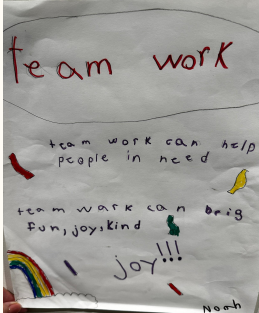 team work
team work can help
people in need
team work can brig
fun, joy, kind
joy!!!
Noah